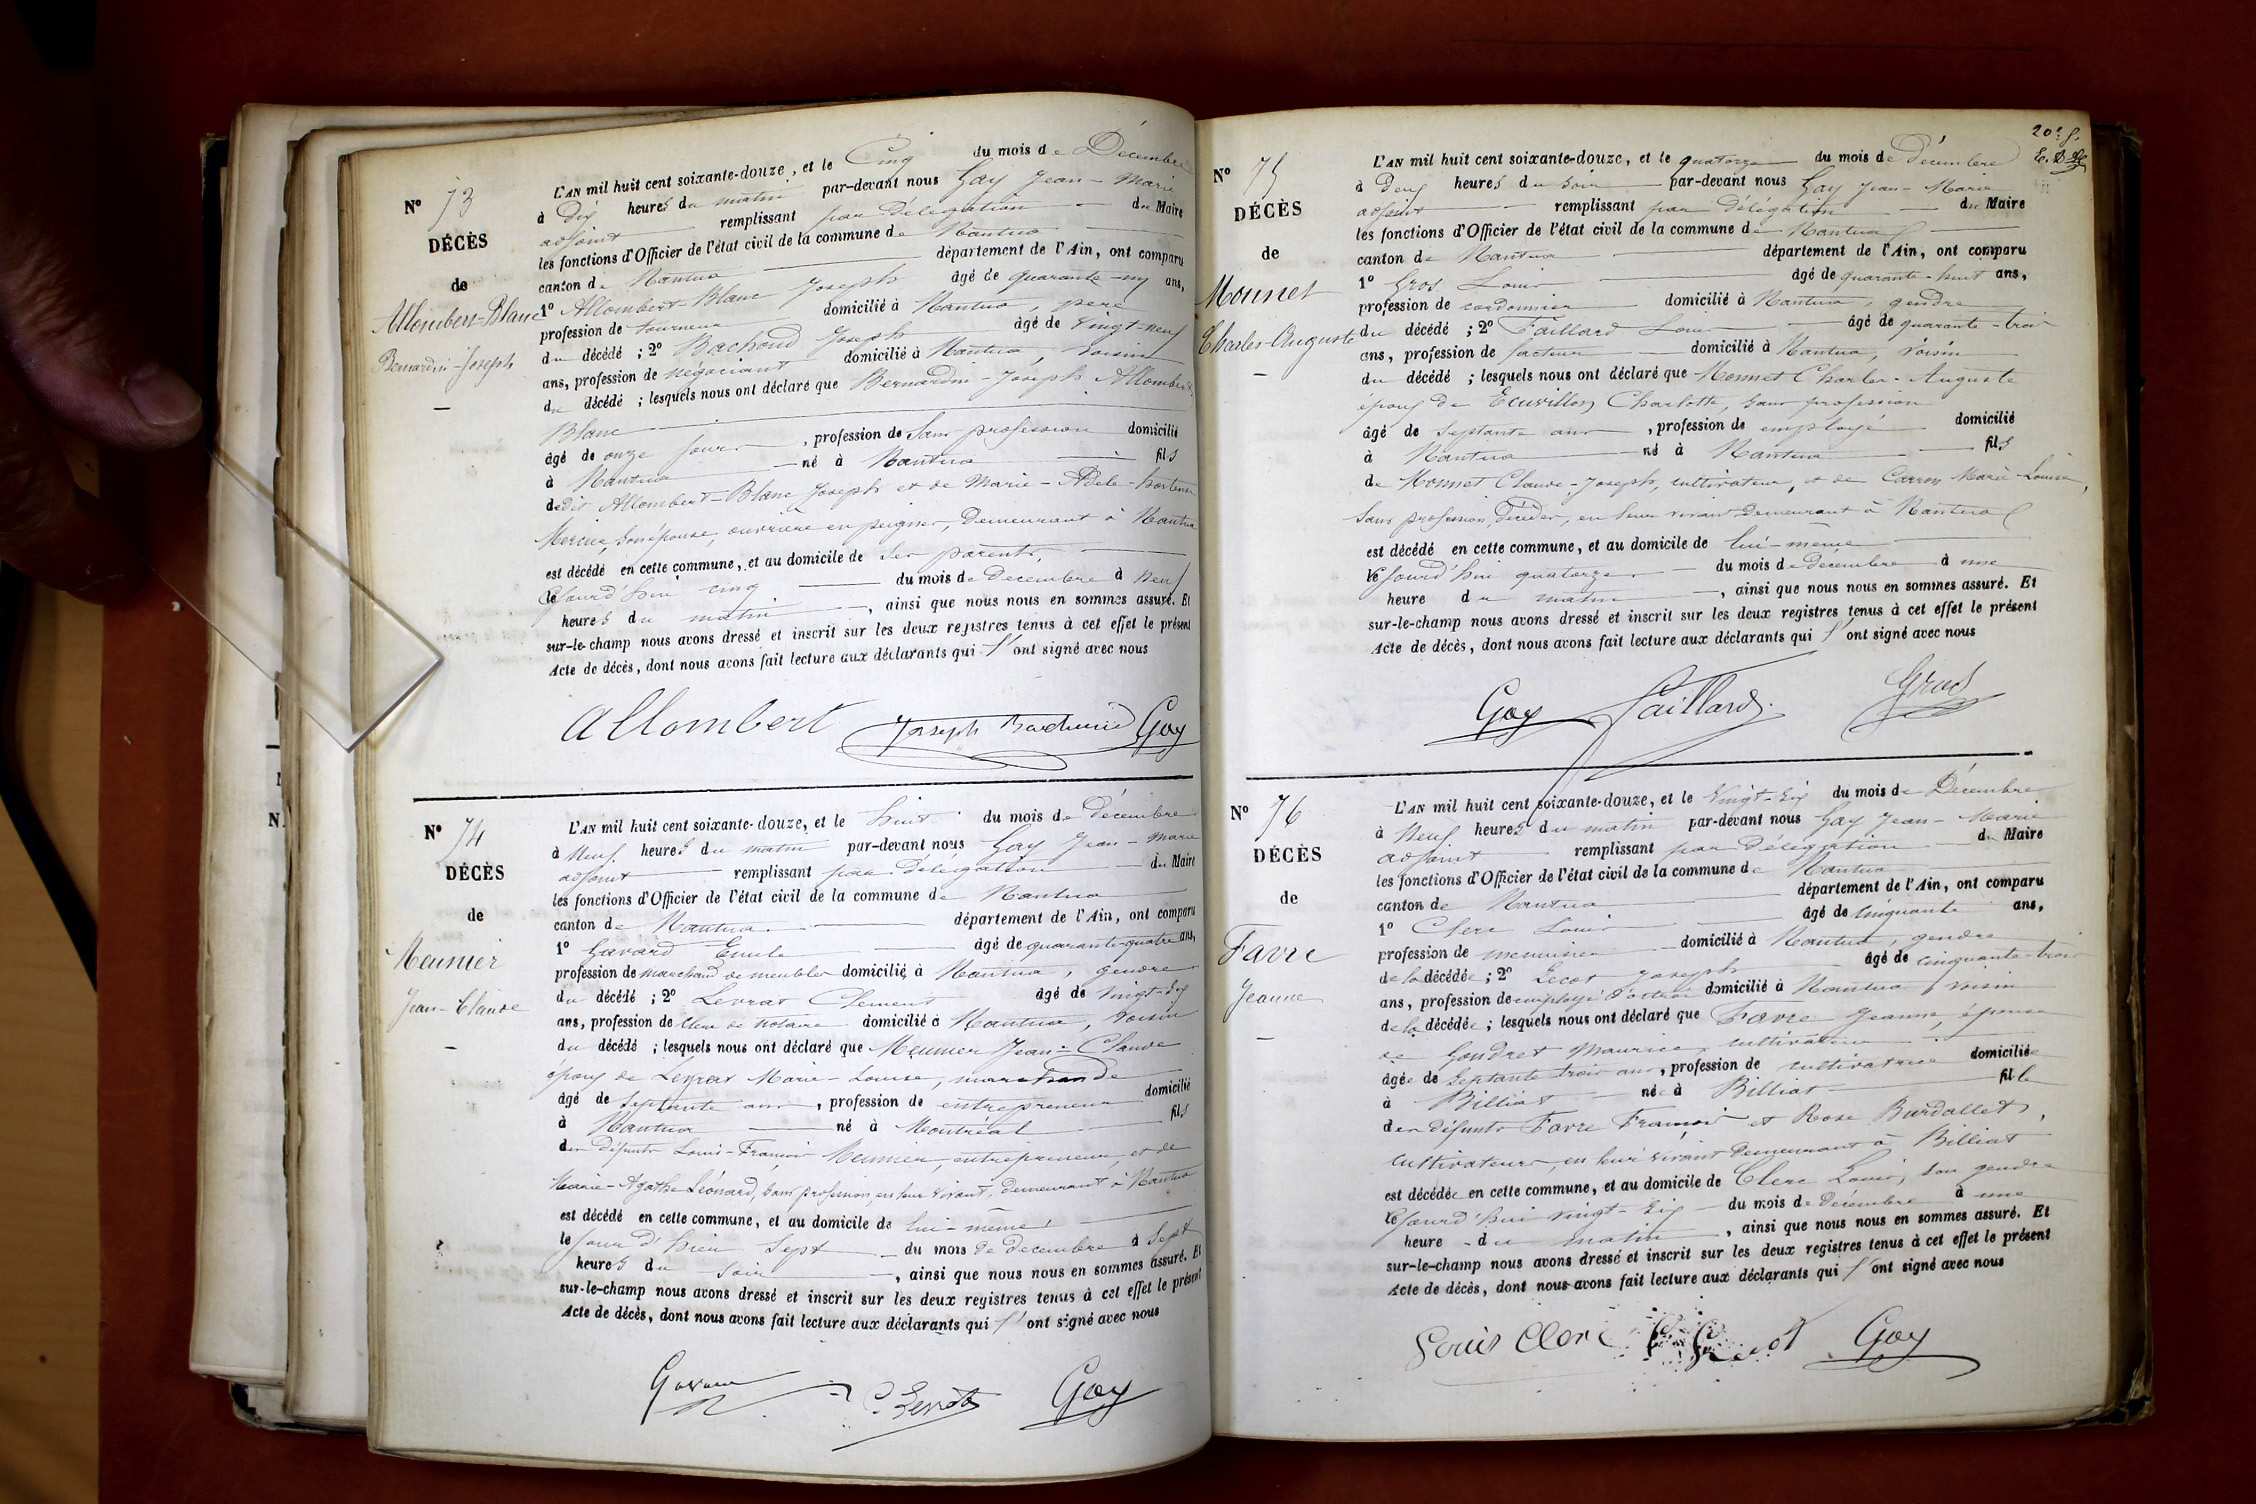 N° 73
DÉCÈS
de
Allombert-Blanc
Bernardin-Joseph
L'AN mil huit cent soixante-douze, et le Cinq du mois de Décembre
à Dix heures du matin par-devant nous Gay Jean-Marie
adjoint remplissant par Délégation du Maire
les fonctions d'Officier de l'état civil de la commune de Nantua
canton de Nantua département de l'Ain, ont comparu
1° Allombert-Blanc Joseph âgé de quarante-un ans,
profession de tourneur domicilié à Nantua, père
du décédé ; 2° Bachoud Joseph âgé de vingt-neuf
ans, profession de négociant domicilié à Nantua, voisin
du décédé ; lesquels nous ont déclaré que Bernardin-Joseph Allombert
Blanc
âgé de onze jours, profession de Sans profession domicilié
à Nantua né à Nantua fils
dedit Allombert-Blanc Joseph et de Marie-Adèle-hortense
Mercier, son épouse, ouvrière en peignes, Demeurant à Nantua
est décédé en cette commune, et au domicile de ses parents,
le jourd'hui cinq du mois de Décembre à neuf
heures du matin, ainsi que nous nous en sommes assuré. Et
sur-le-champ nous avons dressé et inscrit sur les deux registres tenus à cet effet le présent
Acte de décès, dont nous avons fait lecture aux déclarants qui l'ont signé avec nous
Allombert Joseph Bachoud Gay
N° 74
DÉCÈS
de
Meunier
Jean-Claude
L'AN mil huit cent soixante-douze, et le huit du mois de Décembre
à Neuf heures du matin par-devant nous Gay Jean-Marie
adjoint remplissant par Délégation du Maire
les fonctions d'Officier de l'état civil de la commune de Nantua
canton de Nantua département de l'Ain, ont comparu
1° Gavard Emile âgé de quarante-quatre ans,
profession de marchand de meubles domicilié à Nantua, gendre
du décédé ; 2° Levrat Clément âgé de vingt-six
ans, profession de Clerc de Notaire domicilié à Nantua, voisin
du décédé ; lesquels nous ont déclaré que Meunier Jean-Claude
époux de Levrat Marie-Louise, marchande
âgé de septante ans, profession de entrepreneur domicilié
à Nantua né à Montréal fils
des défunts Louis-François Meunier, entrepreneur, et de
Marie-Agathe Léonard, sans profession, en leur vivant, demeurant à Nantua
est décédé en cette commune, et au domicile de lui-même,
le jour d'hier sept du mois de Décembre à sept
heures du soir, ainsi que nous nous en sommes assuré. Et
sur-le-champ nous avons dressé et inscrit sur les deux registres tenus à cet effet le présent
Acte de décès, dont nous avons fait lecture aux déclarants qui l'ont signé avec nous
Gavard C. Levrat Gay
20e f.
N° 75
DÉCÈS
de
Monnet
Charles-Auguste
L'AN mil huit cent soixante-douze, et le quatorze du mois de Décembre
à Deux heures du soir par-devant nous Gay Jean-Marie
adjoint remplissant par délégation du Maire
les fonctions d'Officier de l'état civil de la commune de Nantua
canton de Nantua département de l'Ain, ont comparu
1° Gros Louis âgé de quarante-huit ans,
profession de cordonnier domicilié à Nantua, gendre
du décédé ; 2° Faillard Louis âgé de quarante-trois
ans, profession de facteur domicilié à Nantua, voisin
du décédé ; lesquels nous ont déclaré que Monnet Charles-Auguste
époux de Ecuvillon Charlotte, sans profession
âgé de septante ans, profession de employé domicilié
à Nantua né à Nantua fils
de Monnet Claude-Joseph, cultivateur, et de Carron Marie-Louise,
sans profession, Décédés, en leur vivant Demeurant à Nantua
est décédé en cette commune, et au domicile de lui-même
le jourd'hui quatorze du mois de décembre à une
heure du matin, ainsi que nous nous en sommes assuré. Et
sur-le-champ nous avons dressé et inscrit sur les deux registres tenus à cet effet le présent
Acte de décès, dont nous avons fait lecture aux déclarants qui l'ont signé avec nous
Gay Faillard Gros
N° 76
DÉCÈS
de
Favre
Jeanne
L'AN mil huit cent soixante-douze, et le Vingt-six du mois de Décembre
à Neuf heures du matin par-devant nous Gay Jean-Marie
adjoint remplissant par Délégation du Maire
les fonctions d'Officier de l'état civil de la commune de Nantua
canton de Nantua département de l'Ain, ont comparu
1° Clerc Louis âgé de cinquante ans,
profession de menuisier domicilié à Nantua, gendre
de la décédée ; 2° Lecot Joseph âgé de cinquante-trois
ans, profession de employé d'octroi domicilié à Nantua, voisin
de la décédée ; lesquels nous ont déclaré que Favre Jeanne, épouse
de Gondret Maurice, cultivateur
âgée de septante trois ans, profession de cultivatrice domiciliée
à Billiat née à Billiat fille
des défunts Favre François et Rose Burdallet,
cultivateurs, en leur vivant Demeurant à Billiat
est décédée en cette commune, et au domicile de Clerc Louis, son gendre
le jourd'hui vingt-six du mois de Décembre à une
heure du matin, ainsi que nous nous en sommes assuré. Et
sur-le-champ nous avons dressé et inscrit sur les deux registres tenus à cet effet le présent
Acte de décès, dont nous avons fait lecture aux déclarants qui l'ont signé avec nous
Louis Clerc Gay